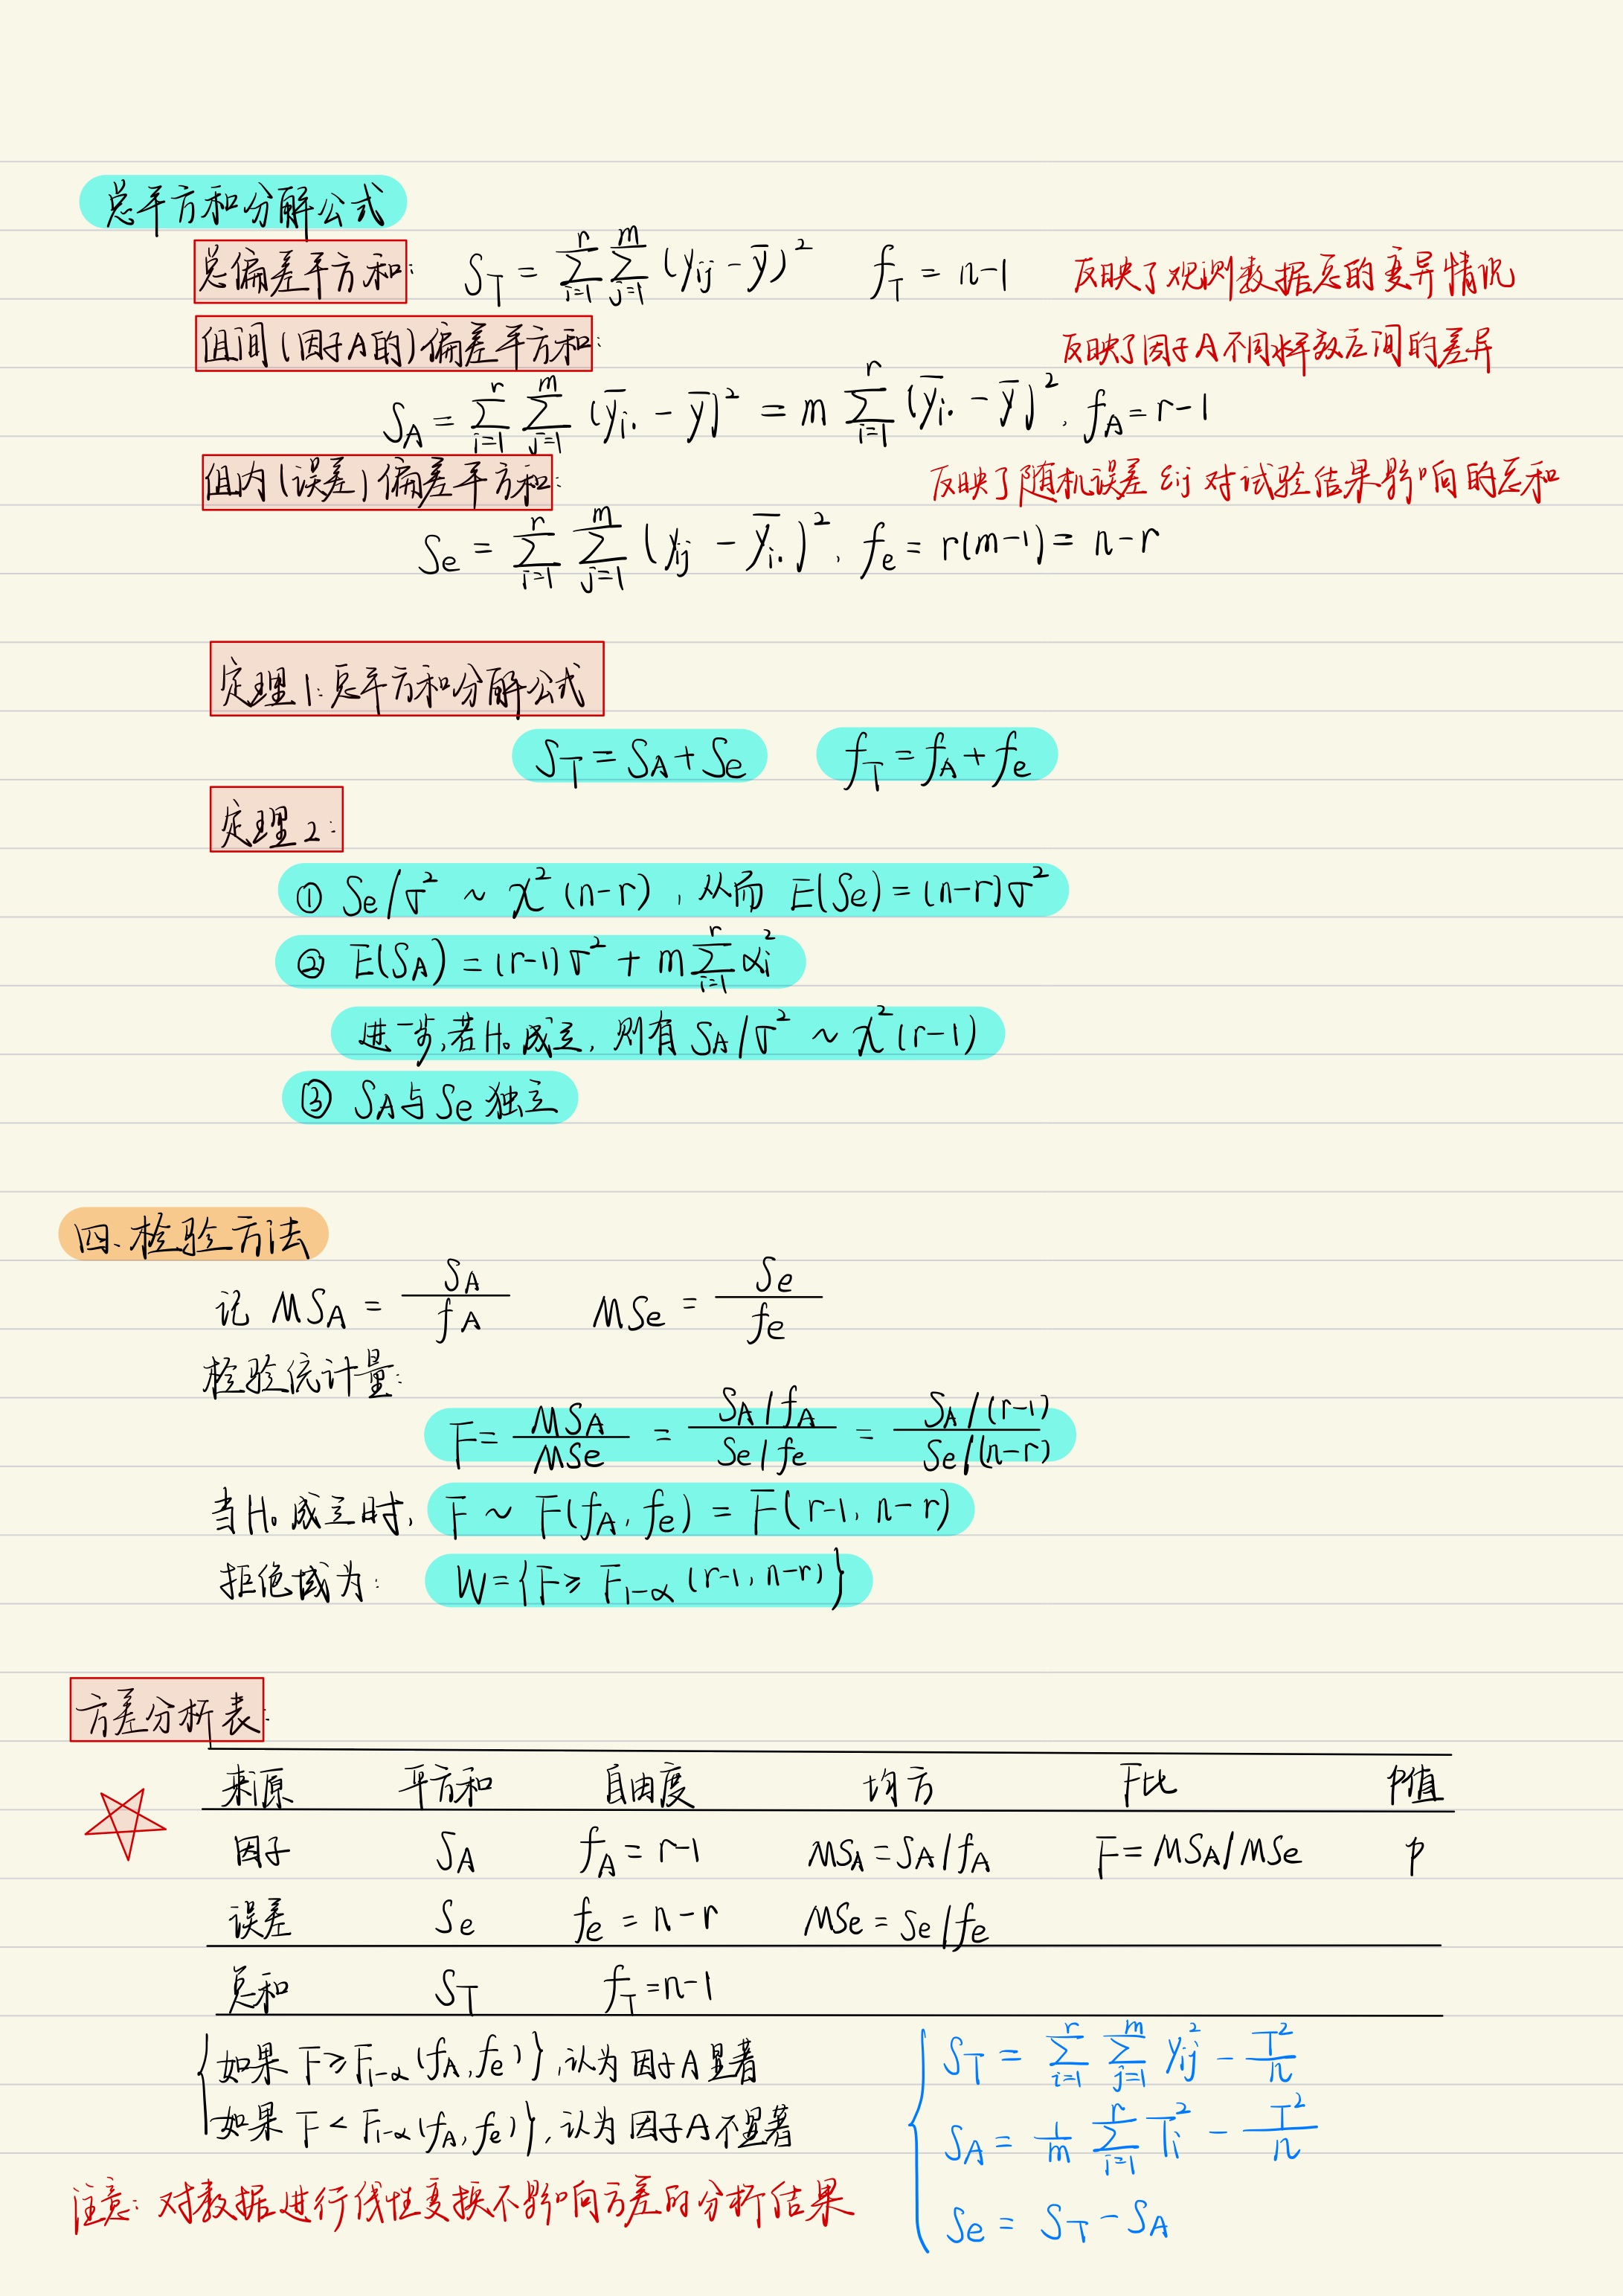 总平方和分解公式
总偏差平方和: S_T = \sum_{i=1}^{r} \sum_{j=1}^{m} (y_{ij} - \bar{y})^2 f_T = n-1 反映了观测数据总的变异情况
组间(因子A的)偏差平方和: 反映了因子A不同水平效应间的差异
S_A = \sum_{i=1}^{r} \sum_{j=1}^{m} (\bar{y}_{i·} - \bar{y})^2 = m \sum_{i=1}^{r} (\bar{y}_{i·} - \bar{y})^2, f_A = r-1
组内(误差)偏差平方和: 反映了随机误差 ε_{ij} 对试验结果影响的总和
S_e = \sum_{i=1}^{r} \sum_{j=1}^{m} (y_{ij} - \bar{y}_{i·})^2, f_e = r(m-1) = n-r
定理1:总平方和分解公式
S_T = S_A + S_e f_T = f_A + f_e
定理2:
① S_e/σ² ~ χ²(n-r), 从而 E(S_e) = (n-r)σ²
② E(S_A) = (r-1)σ² + m \sum_{i=1}^{r} α_i²
进一步,若H₀成立, 则有 S_A/σ² ~ χ²(r-1)
③ S_A与S_e 独立
四、检验方法
记 MS_A = \frac{S_A}{f_A} MS_e = \frac{S_e}{f_e}
检验统计量:
F = \frac{MS_A}{MS_e} = \frac{S_A/f_A}{S_e/f_e} = \frac{S_A/(r-1)}{S_e/(n-r)}
当H₀成立时, F ~ F(f_A, f_e) = F(r-1, n-r)
拒绝域为: W={F≥F_{1-α}(r-1, n-r)}
方差分析表:
来源 平方和 自由度 均方 F比 p值
因子 S_A f_A = r-1 MS_A = S_A/f_A F = MS_A/MS_e p
误差 S_e f_e = n-r MS_e = S_e/f_e
总和 S_T f_T = n-1
如果 F≥F_{1-α}(f_A, f_e)}, 认为因子A显著
如果 F<F_{1-α}(f_A, f_e)}, 认为因子A不显著
S_T = \sum_{i=1}^{r} \sum_{j=1}^{m} y_{ij}^2 - \frac{T^2}{n}
S_A = \frac{1}{m} \sum_{i=1}^{r} T_i^2 - \frac{T^2}{n}
S_e = S_T - S_A
注意: 对数据进行线性变换不影响方差的分析结果